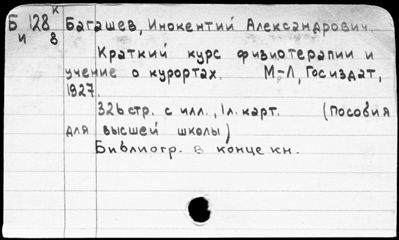 Б 128 к Багашев, Инокентий Александрович.
и 8
Краткий курс физиотерапии и
учение о курортах. М-Л, Госиздат,
1927.
326 стр. с илл., 1 л. карт. (Пособия
для высшей школы)
Библиогр. в конце кн.